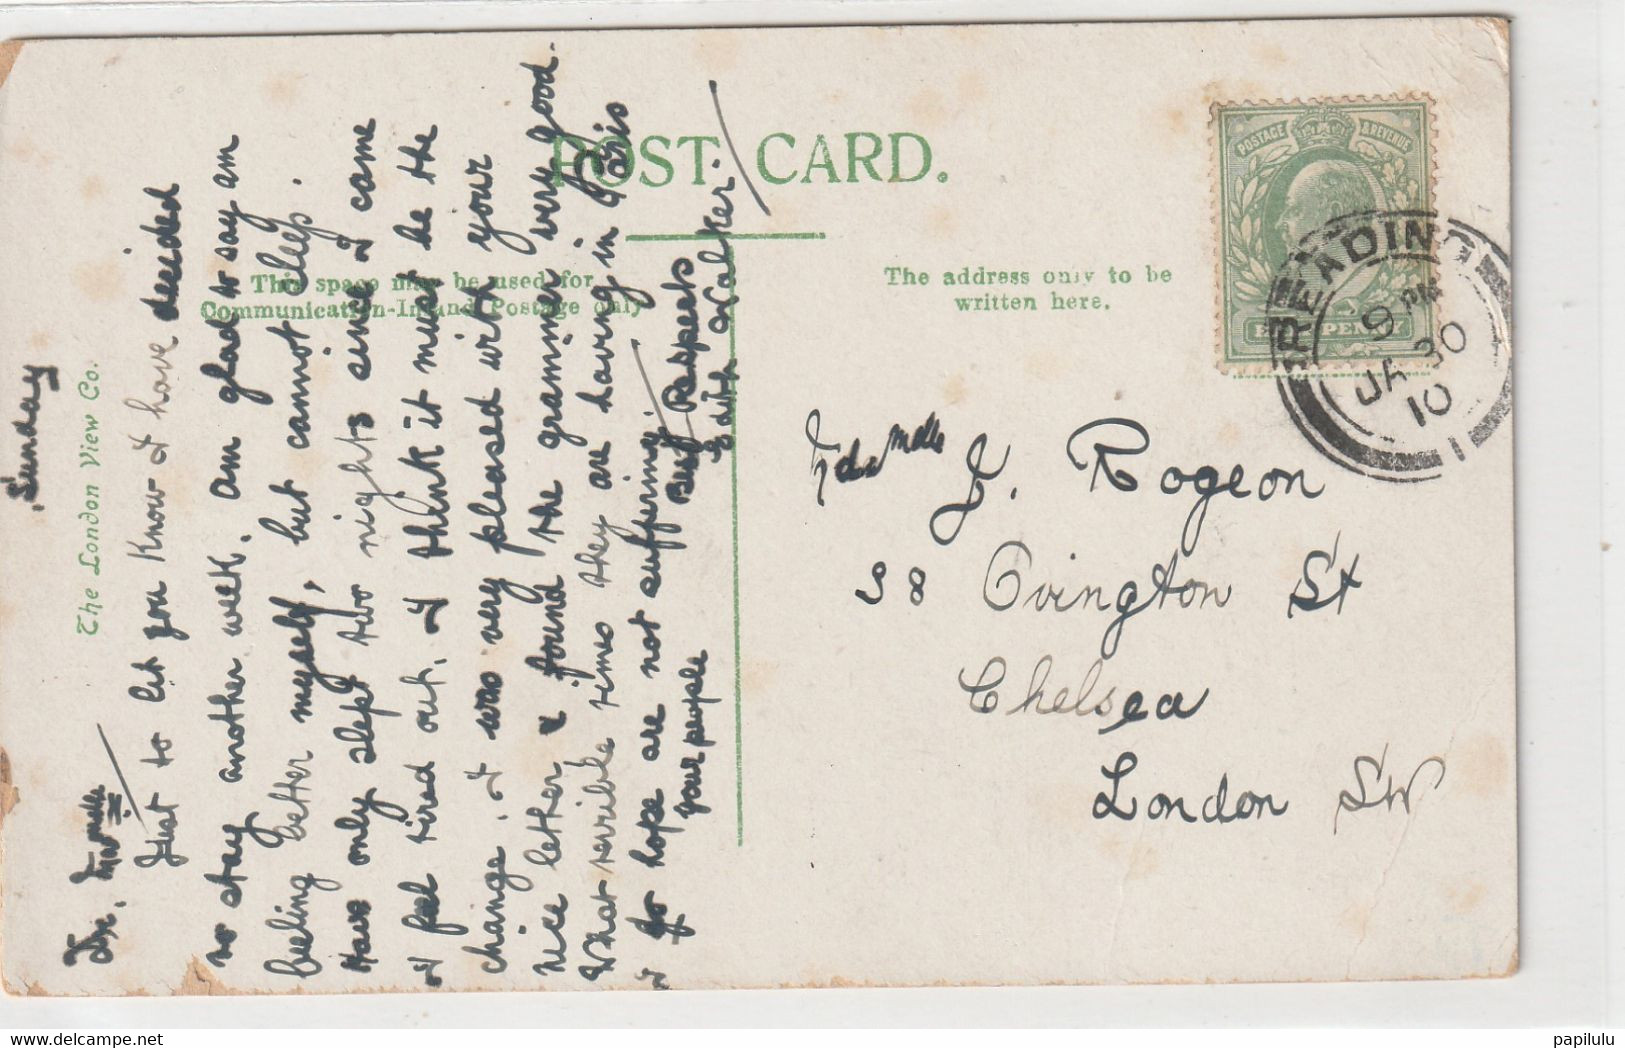 POST CARD.
This space may be used for
Communication-Inland Postage only
The address only to be
written here.
The London View Co.
POSTAGE & REVENUE
HALFPENNY
READING
9 PM
JA 30
10
1
Sunday
Dr. Mdmelle
Just to let you know I have decided
to stay another week. Am glad to say am
feeling better myself, but cannot sleep.
Have only slept two nights since I came
I feel tired out, I think it must be the
change. I was very pleased with your
nice letter & found the grammar very good.
What terrible times they are having in Paris
I do hope are not suffering.
your people
Best Respects
Edith Walker.
Mdlle J. Rogeon
38 Ovington St
Chelsea
London SW
papilulu